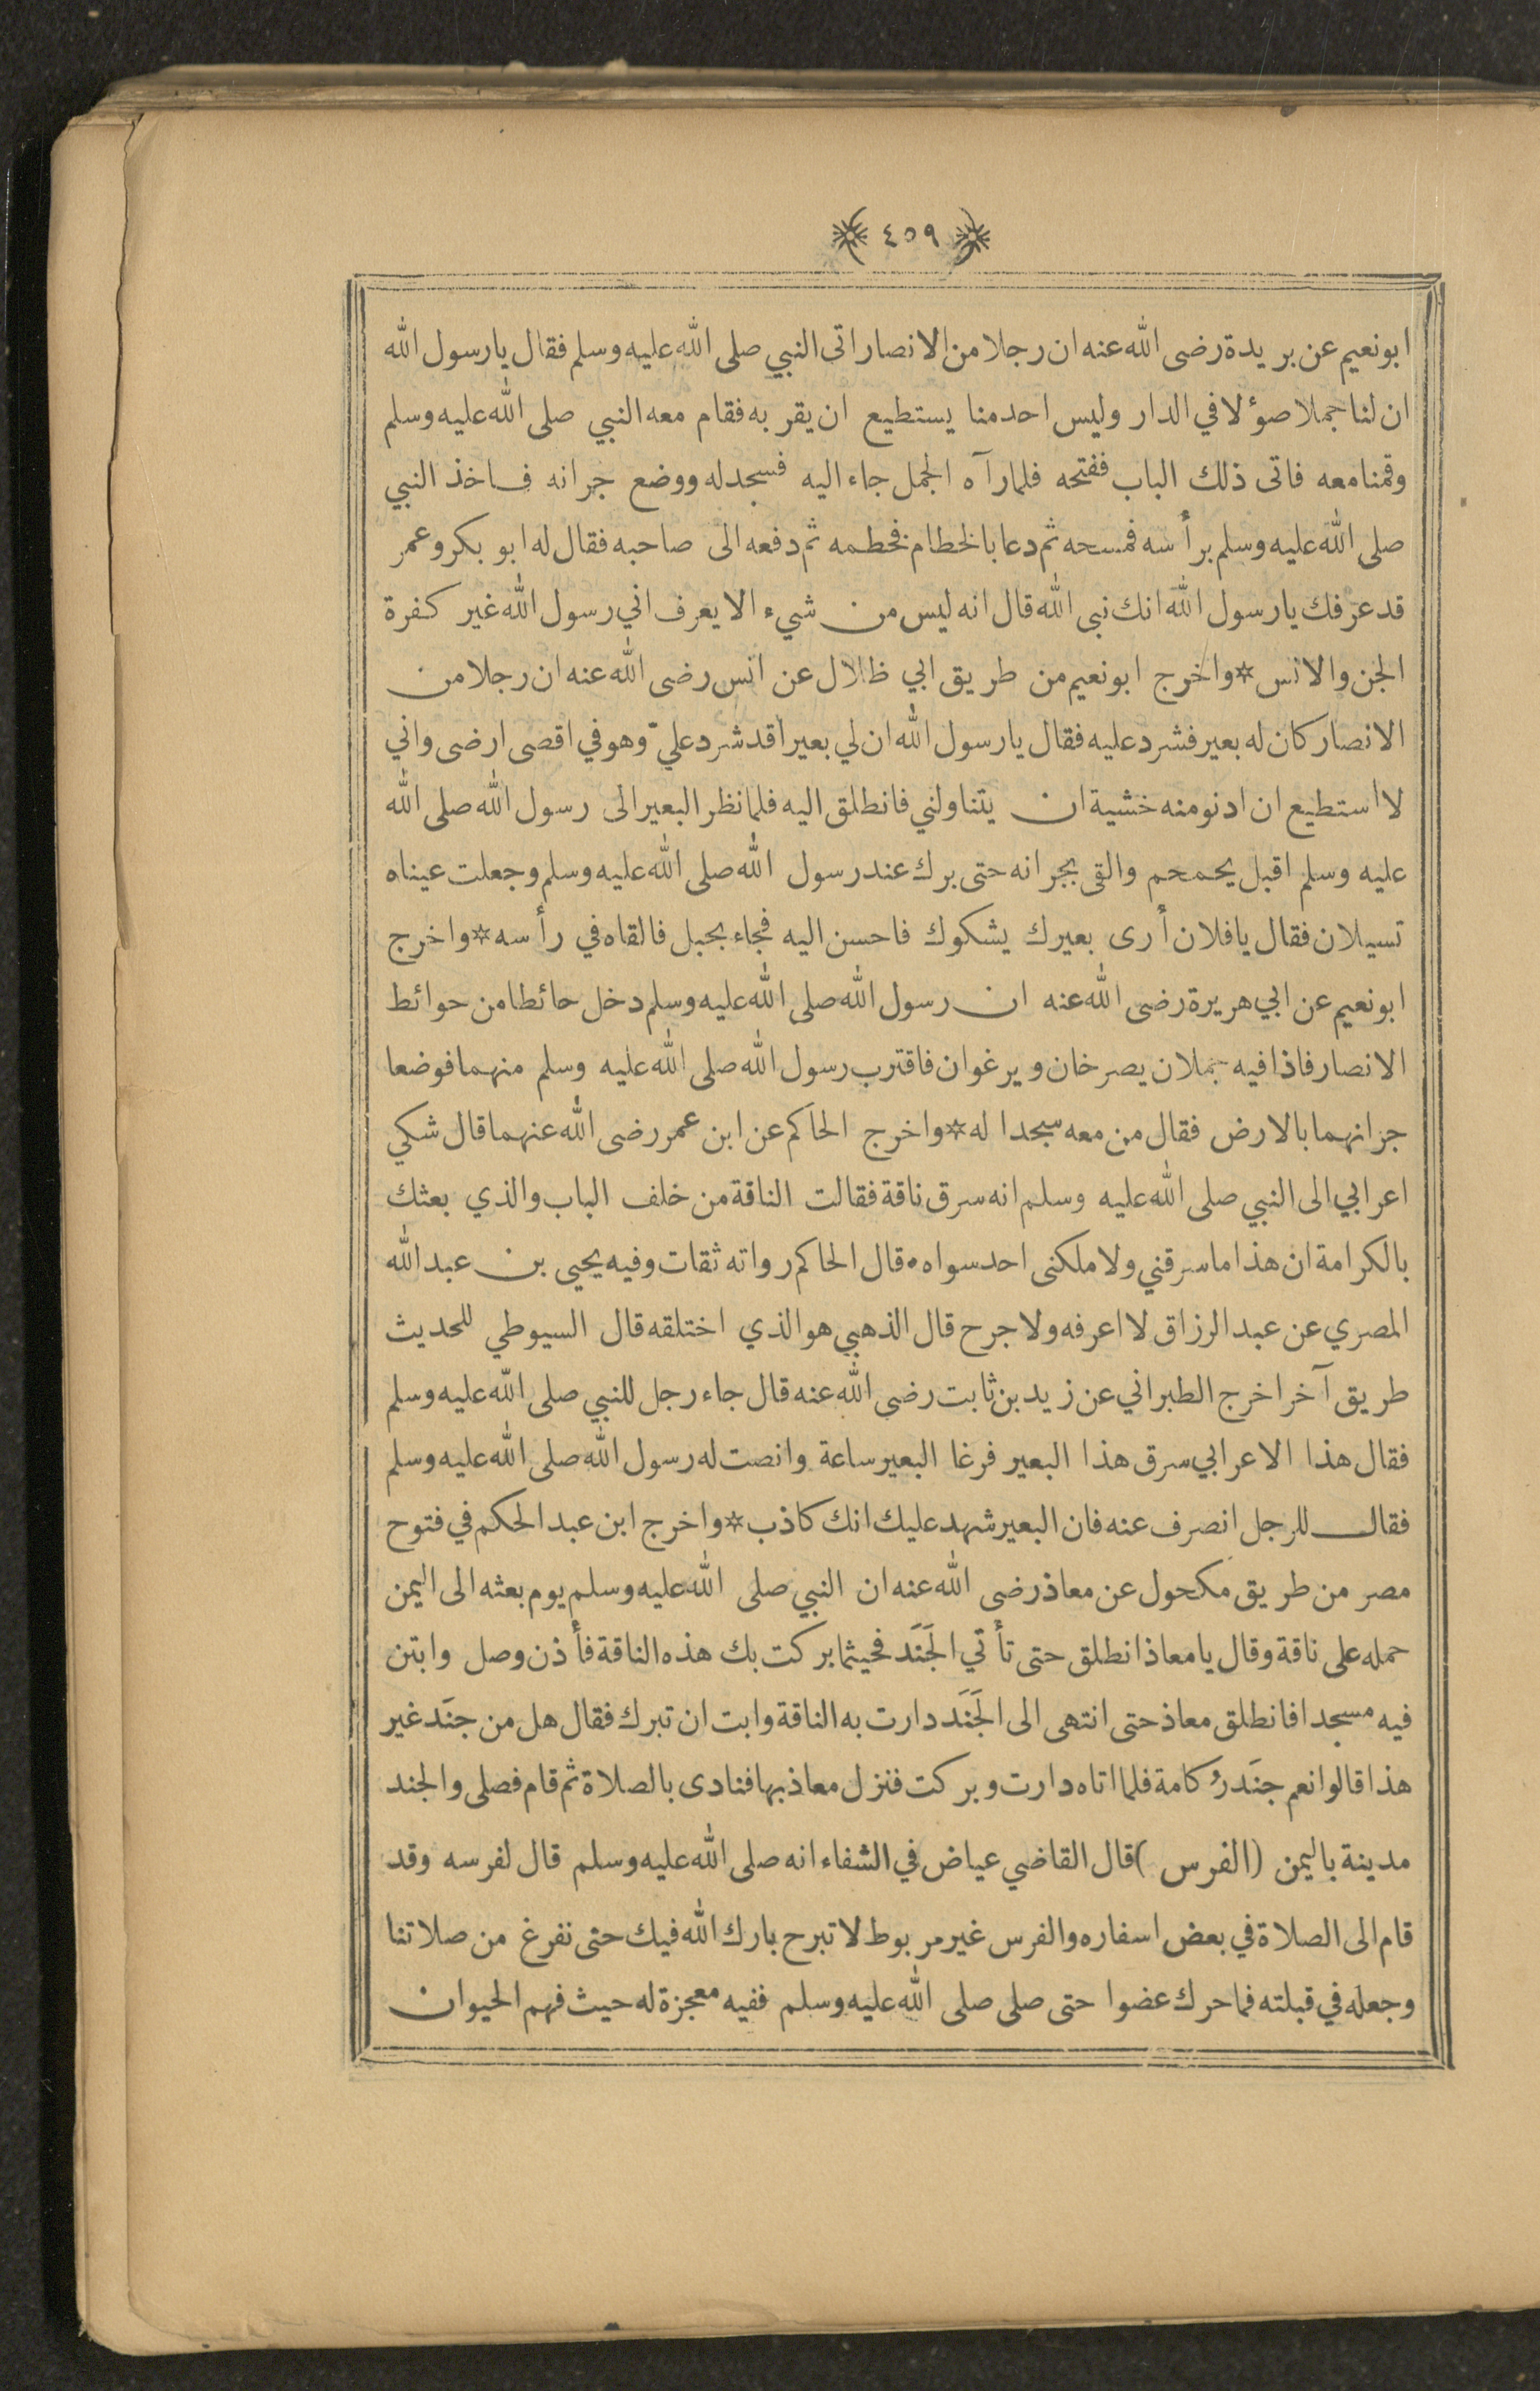 ٤٥٩
ابو نعيم عن بريدة رضى الله عنه ان رجلا من الانصار اتى النبي صلى الله عليه وسلم فقال يا رسول الله
ان لنا جملا صؤلا في الدار وليس احد منا يستطيع ان يقر به فقام معه النبي صلى الله عليه وسلم
وقمنا معه فاتى ذلك الباب ففتحه فلما رآه الجمل جاء اليه فسجد له ووضع جرانه فاخذ النبي
صلى الله عليه وسلم برأسه فمسحه ثم دعا بالخطام فخطمه ثم دفعه الى صاحبه فقال له ابو بكر وعمر
قد عرفك يا رسول الله انك نبى الله قال انه ليس من شيء الا يعرف اني رسول الله غير كفرة
الجن والانس * واخرج ابو نعيم من طريق ابي ظلال عن انس رضى الله عنه ان رجلا من
الانصار كان له بعير فشرد عليه فقال يا رسول الله ان لي بعيرا قد شرد عليّ وهو في اقصى ارضى واني
لا استطيع ان ادنو منه خشية ان يتناولني فانطلق اليه فلما نظر البعير الى رسول الله صلى الله
عليه وسلم اقبل يحمحم والقى بجرانه حتى برك عند رسول الله صلى الله عليه وسلم وجعلت عيناه
تسيلان فقال يا فلان أرى بعيرك يشكوك فاحسن اليه فجاء بحبل فالقاه في رأسه * واخرج
ابو نعيم عن ابي هريرة رضى الله عنه ان رسول الله صلى الله عليه وسلم دخل حائطا من حوائط
الانصار فاذا فيه جملان يصرخان ويرغوان فاقترب رسول الله صلى الله عليه وسلم منهما فوضعا
جرانهما بالارض فقال من معه سجدا له * واخرج الحاكم عن ابن عمر رضى الله عنهما قال شكي
اعرابي الى النبي صلى الله عليه وسلم انه سرق ناقة فقالت الناقة من خلف الباب والذي بعثك
بالكرامة ان هذا ما سرقني ولا ملكنى احد سواه . قال الحاكم رواته ثقات وفيه يحيى بن عبد الله
المصري عن عبد الرزاق لا اعرفه ولا جرح قال الذهبي هو الذي اختلقه قال السيوطي للحديث
طريق آخر اخرج الطبراني عن زيد بن ثابت رضى الله عنه قال جاء رجل للنبي صلى الله عليه وسلم
فقال هذا الاعرابي سرق هذا البعير فرغا البعير ساعة وانصت له رسول الله صلى الله عليه وسلم
فقال للرجل انصرف عنه فان البعير شهد عليك انك كاذب * واخرج ابن عبد الحكم في فتوح
مصر من طريق مكحول عن معاذ رضى الله عنه ان النبي صلى الله عليه وسلم يوم بعثه الى اليمن
حمله على ناقة وقال يا معاذ انطلق حتى تأتي الجَنَد فحيثما بركت بك هذه الناقة فأذن وصل وابتن
فيه مسجدا فانطلق معاذ حتى انتهى الى الجَنَد دارت به الناقة وابت ان تبرك فقال هل من جنَد غير
هذا قالوا نعم جنَد رُكامة فلما اتاه دارت وبركت فنزل معاذ بها فنادى بالصلاة ثم قام فصلى والجند
مدينة باليمن (الفرس) قال القاضي عياض في الشفاء انه صلى الله عليه وسلم قال لفرسه وقد
قام الى الصلاة في بعض اسفاره والفرس غير مربوط لا تبرح بارك الله فيك حتى نفرغ من صلاتنا
وجعله في قبلته فما حرك عضوا حتى صلى صلى الله عليه وسلم ففيه معجزة له حيث فهم الحيوان